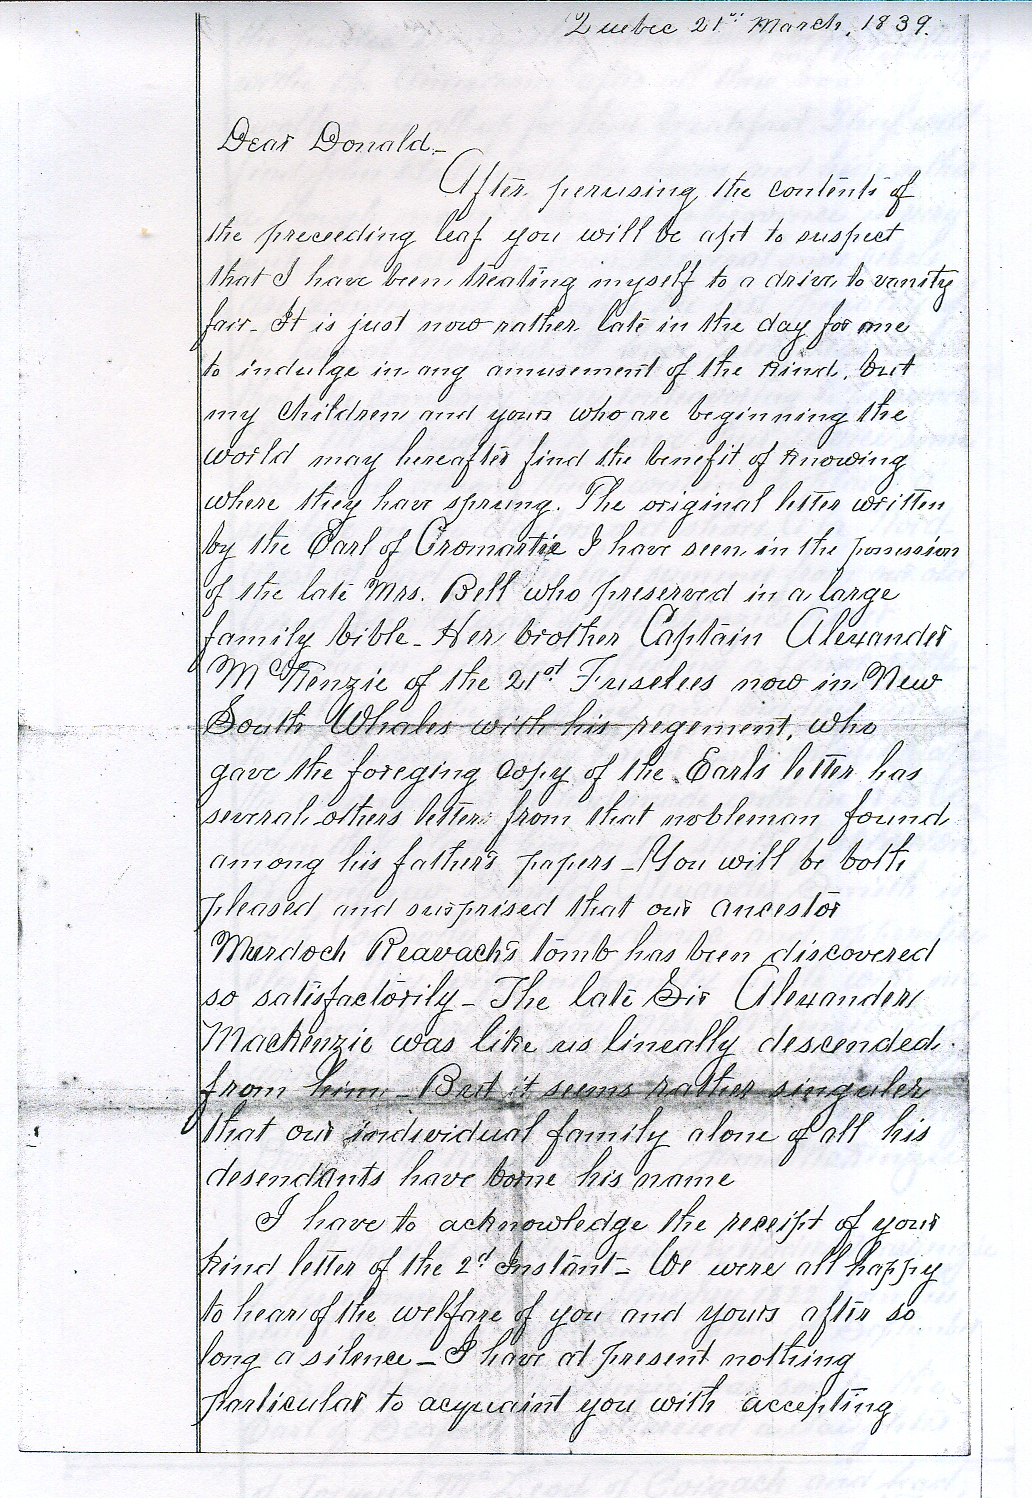 Quebec 21st March, 1839.
Dear Donald,-
After perusing the contents of
the preceeding leaf you will be apt to suspect
that I have been treating myself to a drive to vanity
fair- It is just now rather late in the day for me
to indulge in any amusement of the kind, but
my children and yours who are beginning the
world may hereafter find the benefit of knowing
where they have sprung. The original letter written
by the Earl of Cromartie I have seen in the possession
of the late Mrs. Bell who preserved in a large
family bible- Her brother Captain Alexander
McKenzie of the 21st Fuselees now in New
South Whales with his regement, who
gave the foreging copy of the Earls letter has
several others letters from that nobleman found
among his father's papers- You will be both
pleased and surprised that our ancestor
Murdoch Reavach's tomb has been discovered
so satisfactorily- The late Sir Alexander
Mackenzie was like us lineally descended
from him- But it seems rather singuler
that our individual family alone of all his
desendants have borne his name
I have to acknowledge the receipt of your
kind letter of the 2d Instant- We were all happy
to hear of the welfare of you and yours after so
long a silence- I have at present nothing
particular to acquaint you with accepting